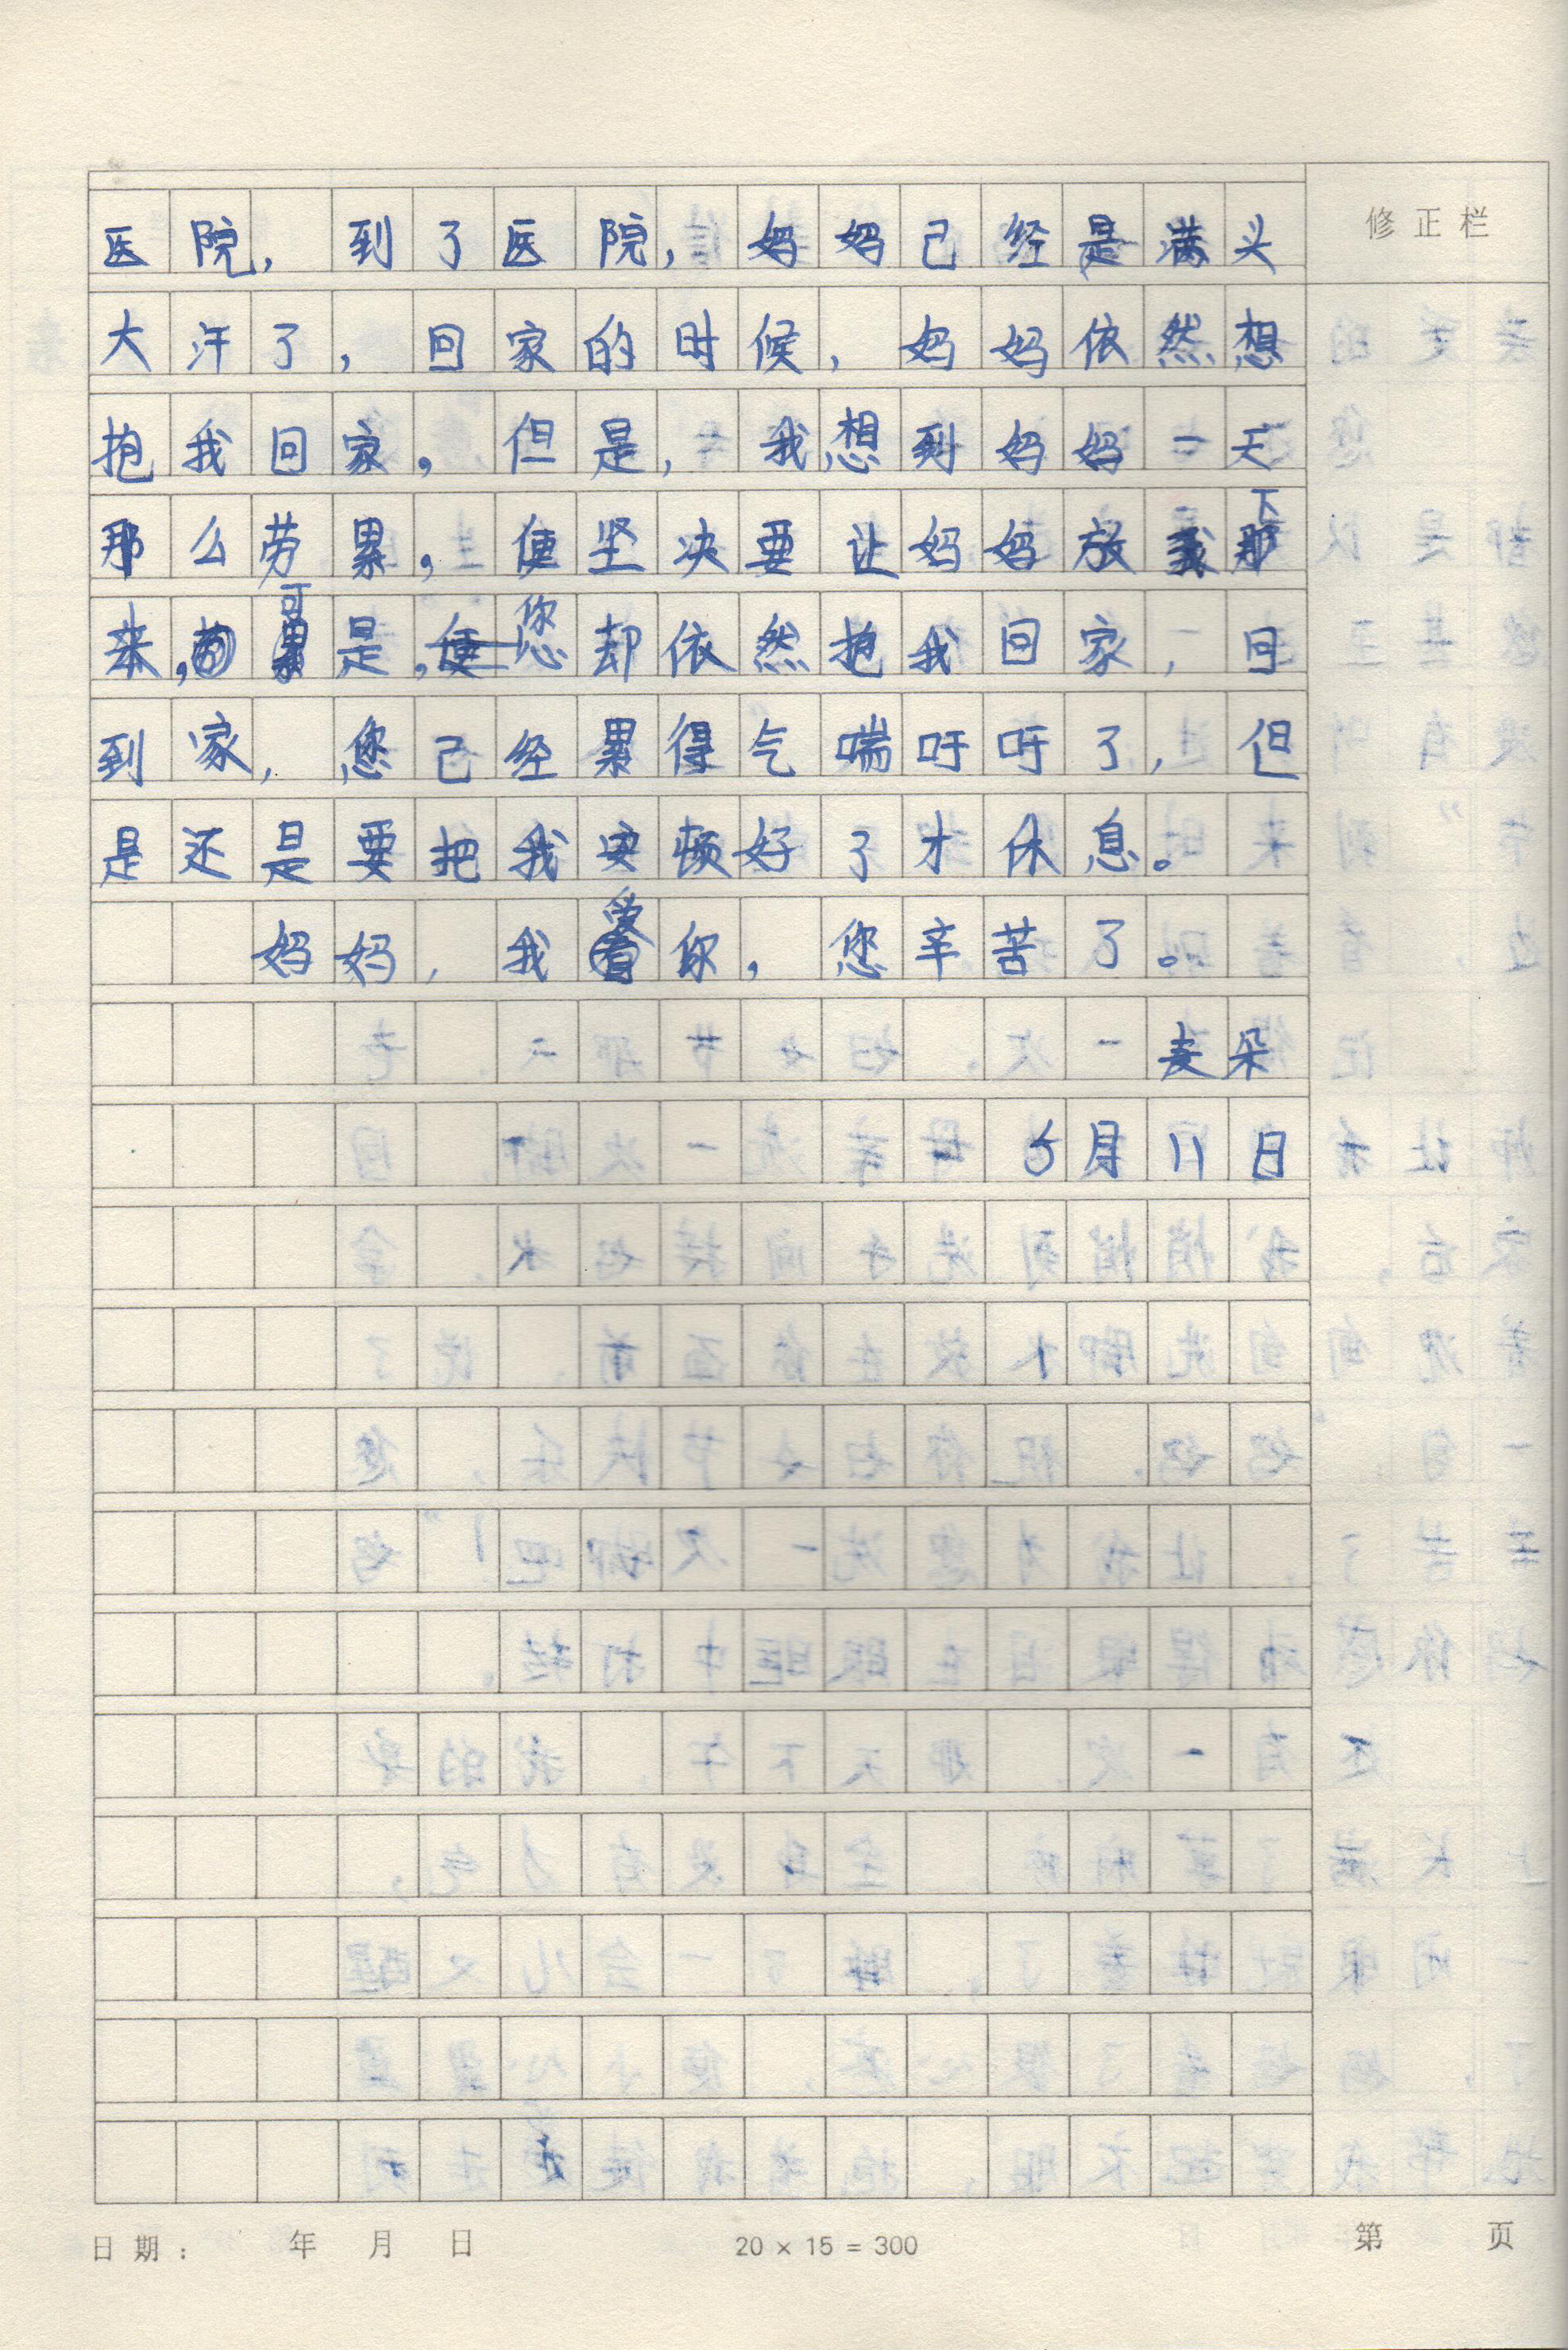 修正栏
医院，到了医院，妈妈己经是满头
大汗了，回家的时候，妈妈依然想
抱我回家，但是，我想到妈妈一天
那么劳累，便坚决要让妈妈放下
来，可是，您却依然抱我回家，回
到家，您己经累得气喘吁吁了，但
是还是要把我安顿好了才休息。
妈妈，我爱你，您辛苦了。
麦朵
5月11日
日期： 年 月 日 20 × 15 = 300 第 页